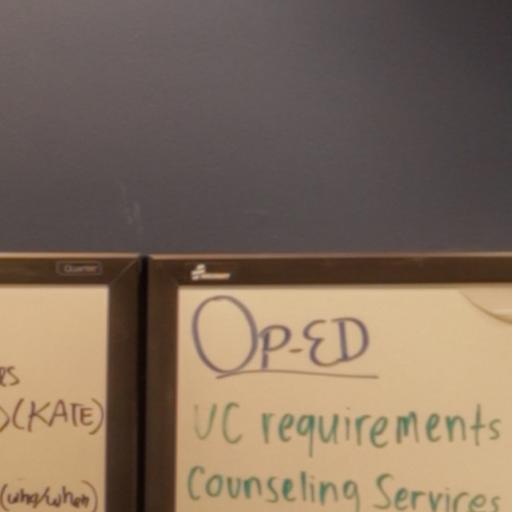 Quartet
es
(KATE)
(who/when)
OP-ED
UC requirements
Counseling Services